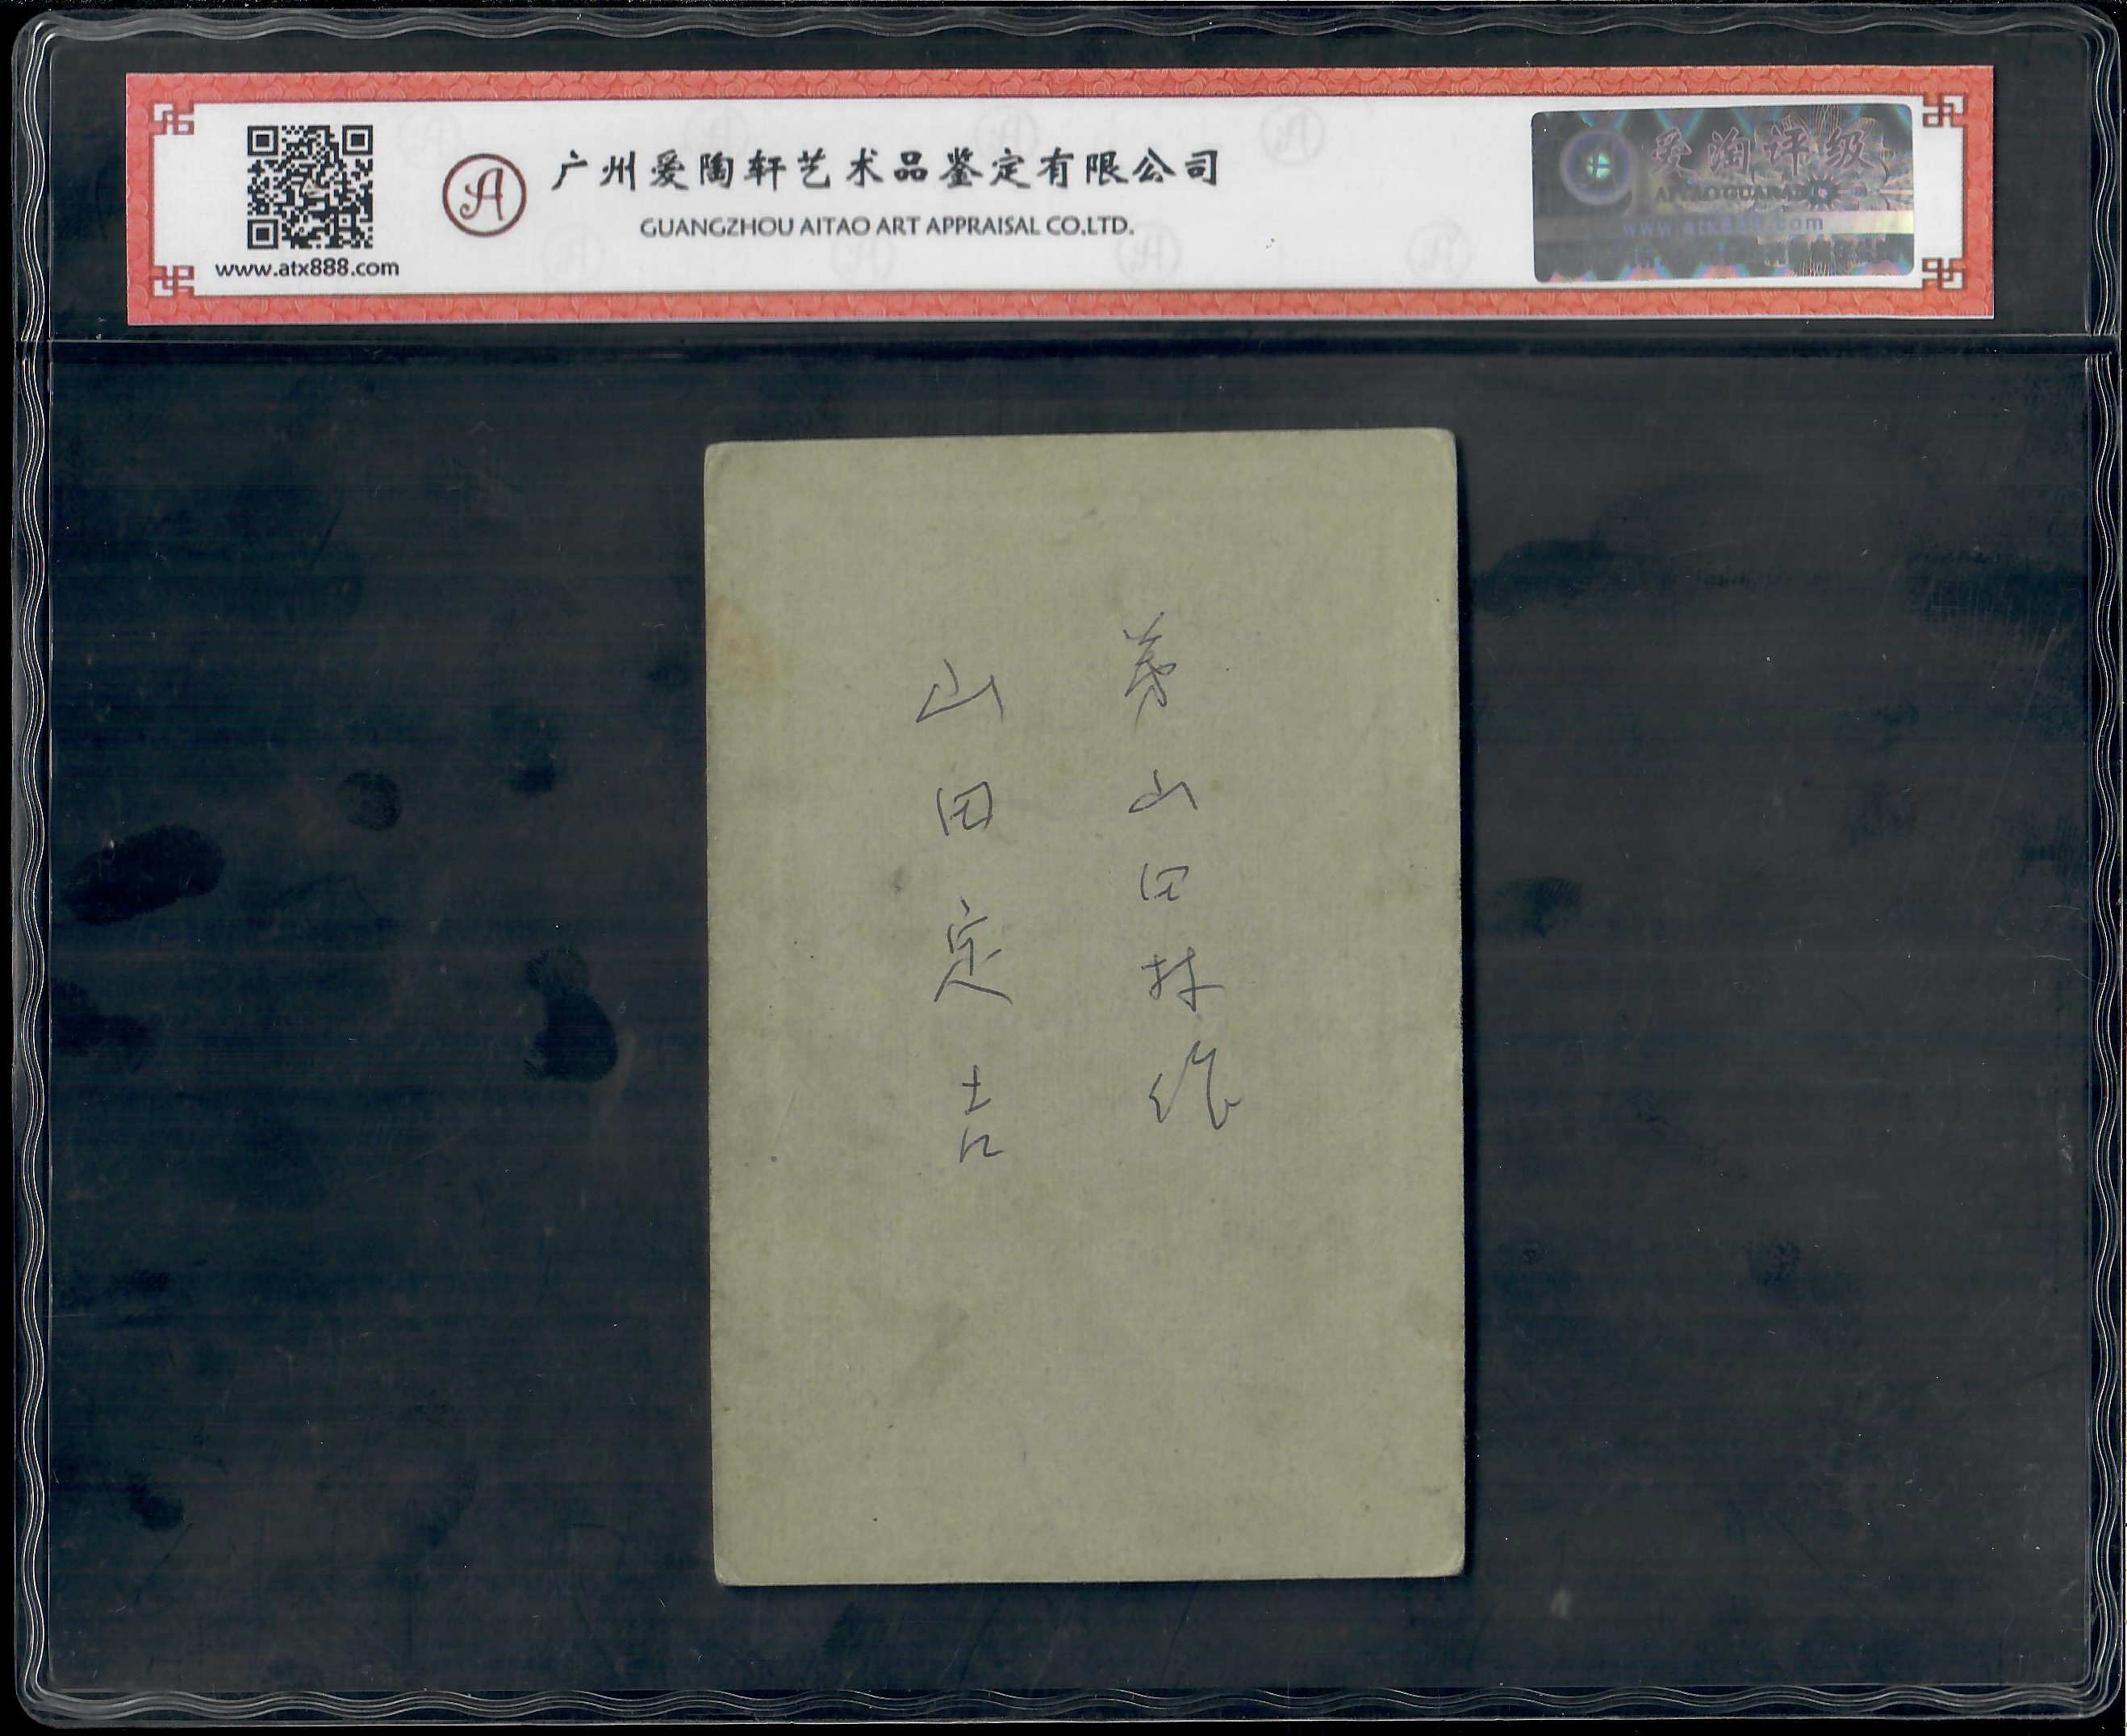 广州爱陶轩艺术品鉴定有限公司
GUANGZHOU AITAO ART APPRAISAL CO.LTD.
www.atx888.com
爱淘评级
www.atx888.com
弟 山田林作
山田定吉